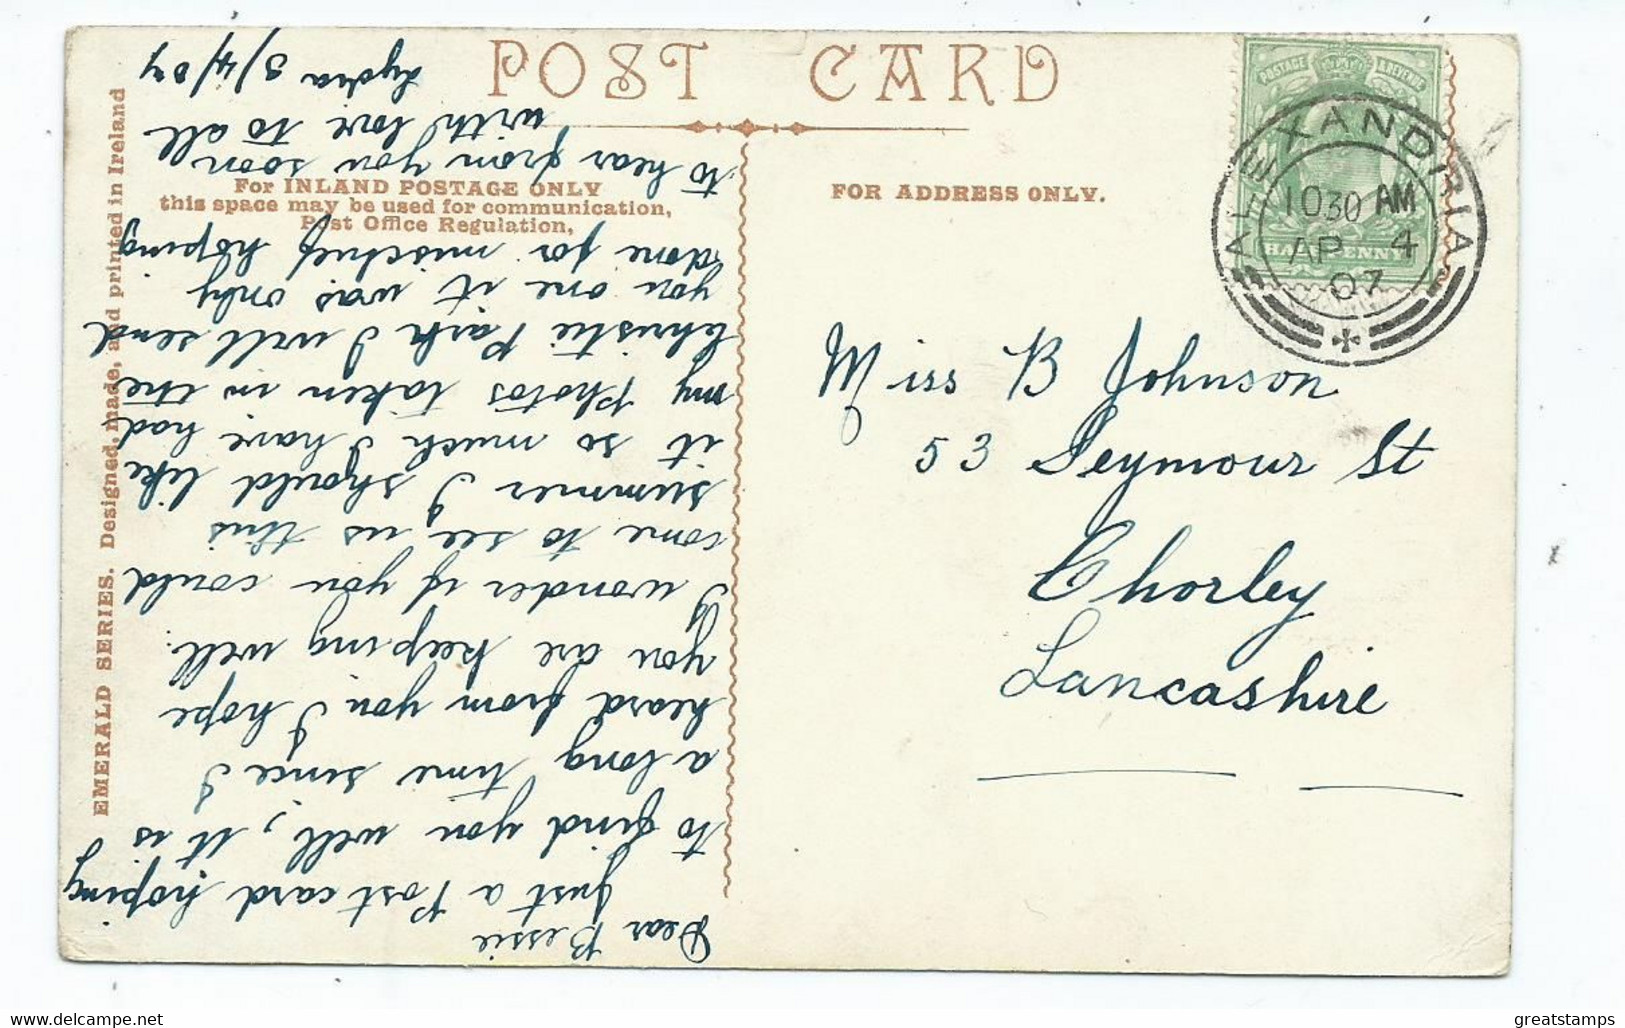 POST CARD
For INLAND POSTAGE ONLY
this space may be used for communication,
Post Office Regulation,
FOR ADDRESS ONLY.
EMERALD SERIES. Designed, made, and printed in Ireland
POSTAGE & REVENUE
HALFPENNY
ALEXANDRIA
1030 AM
AP 4
07
Miss B Johnson
53 Seymour St
Chorley
Lancashire
Dear Bessie
Just a Post card hoping
to find you well, it is
a long time since I
heard from you I hope
you are keeping well.
I wonder if you could
come to see us this
summer I should like
it so much I have had
my Photos taken in the
Christie Park I will send
you one it was only
done for mischief hoping
to hear from you soon
with love to all
Lydia 3/4/07
greatstamps